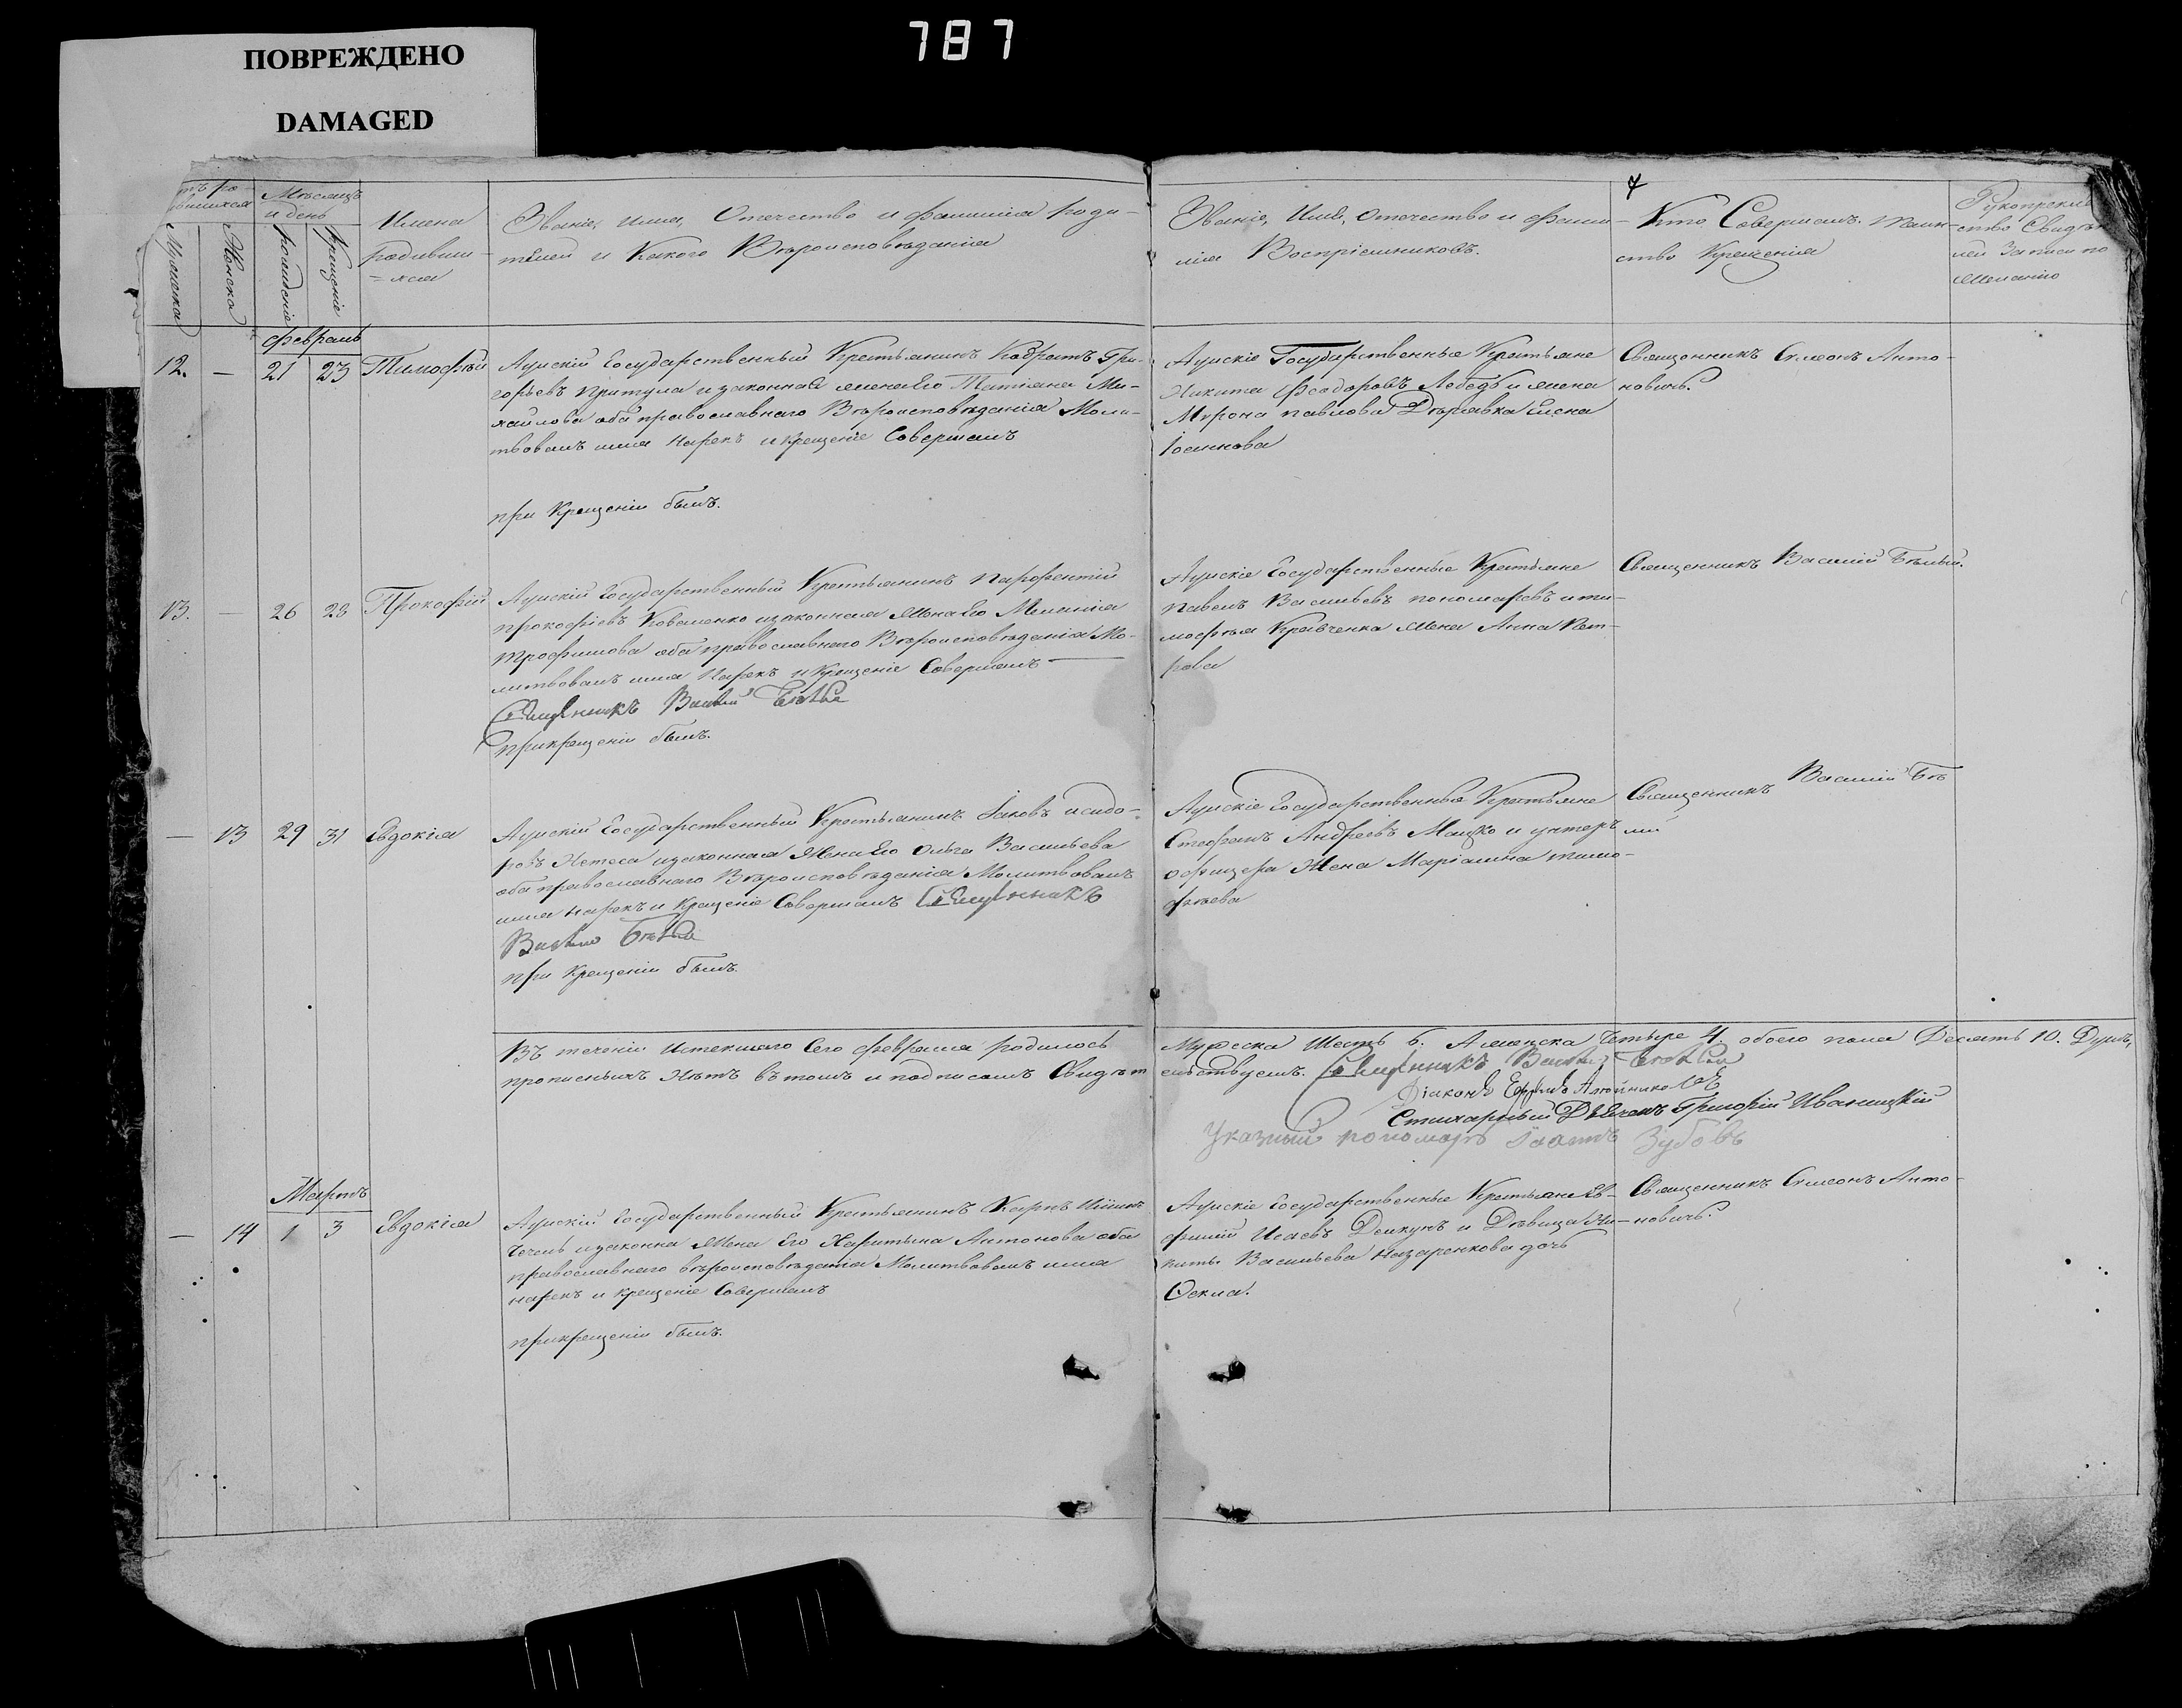 787
ПОВРЕЖДЕНО
DAMAGED
7
Мѣсяцъ
и день
Мужеска
Женска
рожденіе
крещеніе
Имена
родивши-
=хся
Званіе, имя, Отечество и фамилія роди-
телей и Какого Вѣроисповѣданія
Званіе, Имя, Отечество и фами-
лія Воспріемниковъ.
Кто Совершалъ таин-
ство Крещенія
Рукоприклад
ство Свидѣте
лей Записи по
желанію
февраль
12. — 21 23 Тимофѣй
Аускій Государственный Крестьянинъ Кодратъ Гри-
горьевъ Притула и законная жена Его Татіяна Ми-
хайлова оба православнаго Вѣроисповѣданія Моли-
твовалъ имя Нарекъ и крещеніе Совершалъ
при Крещеніи былъ.
Аускіе Государственные Крестьяне
Никита Феодоровъ Лебедь и жена
Мурона павлова Елена
Священникъ Симеонъ Анто-
новичь.
13. — 26 28 Прокофій
Аускій Государственный Крестьянинъ Парфентій
прокофіевъ Коваленко изаконная Жена Его Меланія
Трофимова оба православнаго Вѣроисповѣданія Мо-
литвовалъ имя Нарекъ и Крещеніе Совершалъ
Священникъ
прикрещеніи былъ.
Аускіе Государственные Крестьяне
Павелъ Васильевъ пономаревъ и ти-
мофѣя Кравченка Жена Анна Пет-
рова
Священникъ Василій Бѣлый.
— 13 29 31 Евдокія
Аускій Государственный Крестьянинъ Іаковъ исидо-
ровъ Нетеса изаконная Жена Его Ольга Васильева
оба православнаго Вѣроисповѣданія Молитвовалъ
имя нарекъ и Крещеніе Совершалъ Священникъ
при Крещеніи былъ.
Аускіе Государственные Крестьяне
Стефанъ Андреевъ Мацко и унтеръ
офицера Жена Маріамна тимо-
фѣева
Священникъ Василій Бѣ
лый
Въ теченіи Истекшаго Сего февраля родилось Мужеска Шесть 6. Аженска Четыре 4. обоего пола Десять 10. Душъ,
прописныхъ Нѣтъ вътомъ и подписомъ Свидѣтельствуемъ. Священникъ
Діаконъ
Стихарный Григорій Иваницкій
Указный пономарь Зубовъ
Мартъ
— 14 1 3 Евдокія
Аускій Государственный Крестьянинъ Карпъ
изаконна Жена Его Харитына Антонова оба
православнаго вѣроисповѣданія Молитвовалъ имя
нарекъ и крещеніе Совершалъ
прикрещеніи былъ.
Аускіе Государственные Крестьяне Ев-
фимій Исаевъ Деикунъ и Дѣвица Ни-
киты Васильева Назаренкова дочь
Ѳекла.
Священникъ Симеонъ Анто-
новичь.